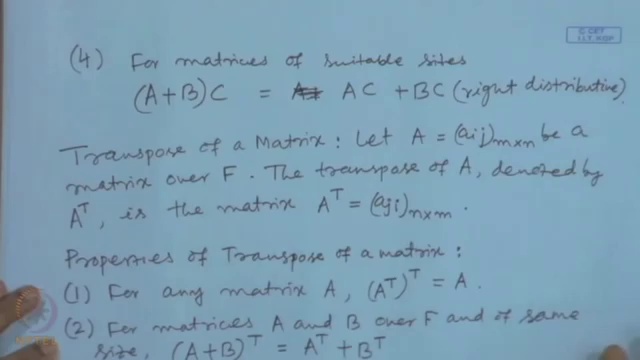 © CET
I.I.T. KGP
(4) For matrices of suitable sizes
(A+B)C = AC + BC (right distributive).
Transpose of a Matrix : Let A = (aij)m×n be a
matrix over F. The transpose of A, denoted by
Aᵀ, is the matrix Aᵀ = (aji)n×m.
Properties of Transpose of a matrix :
(1) For any matrix A, (Aᵀ)ᵀ = A.
(2) For matrices A and B over F and of same
size, (A+B)ᵀ = Aᵀ + Bᵀ